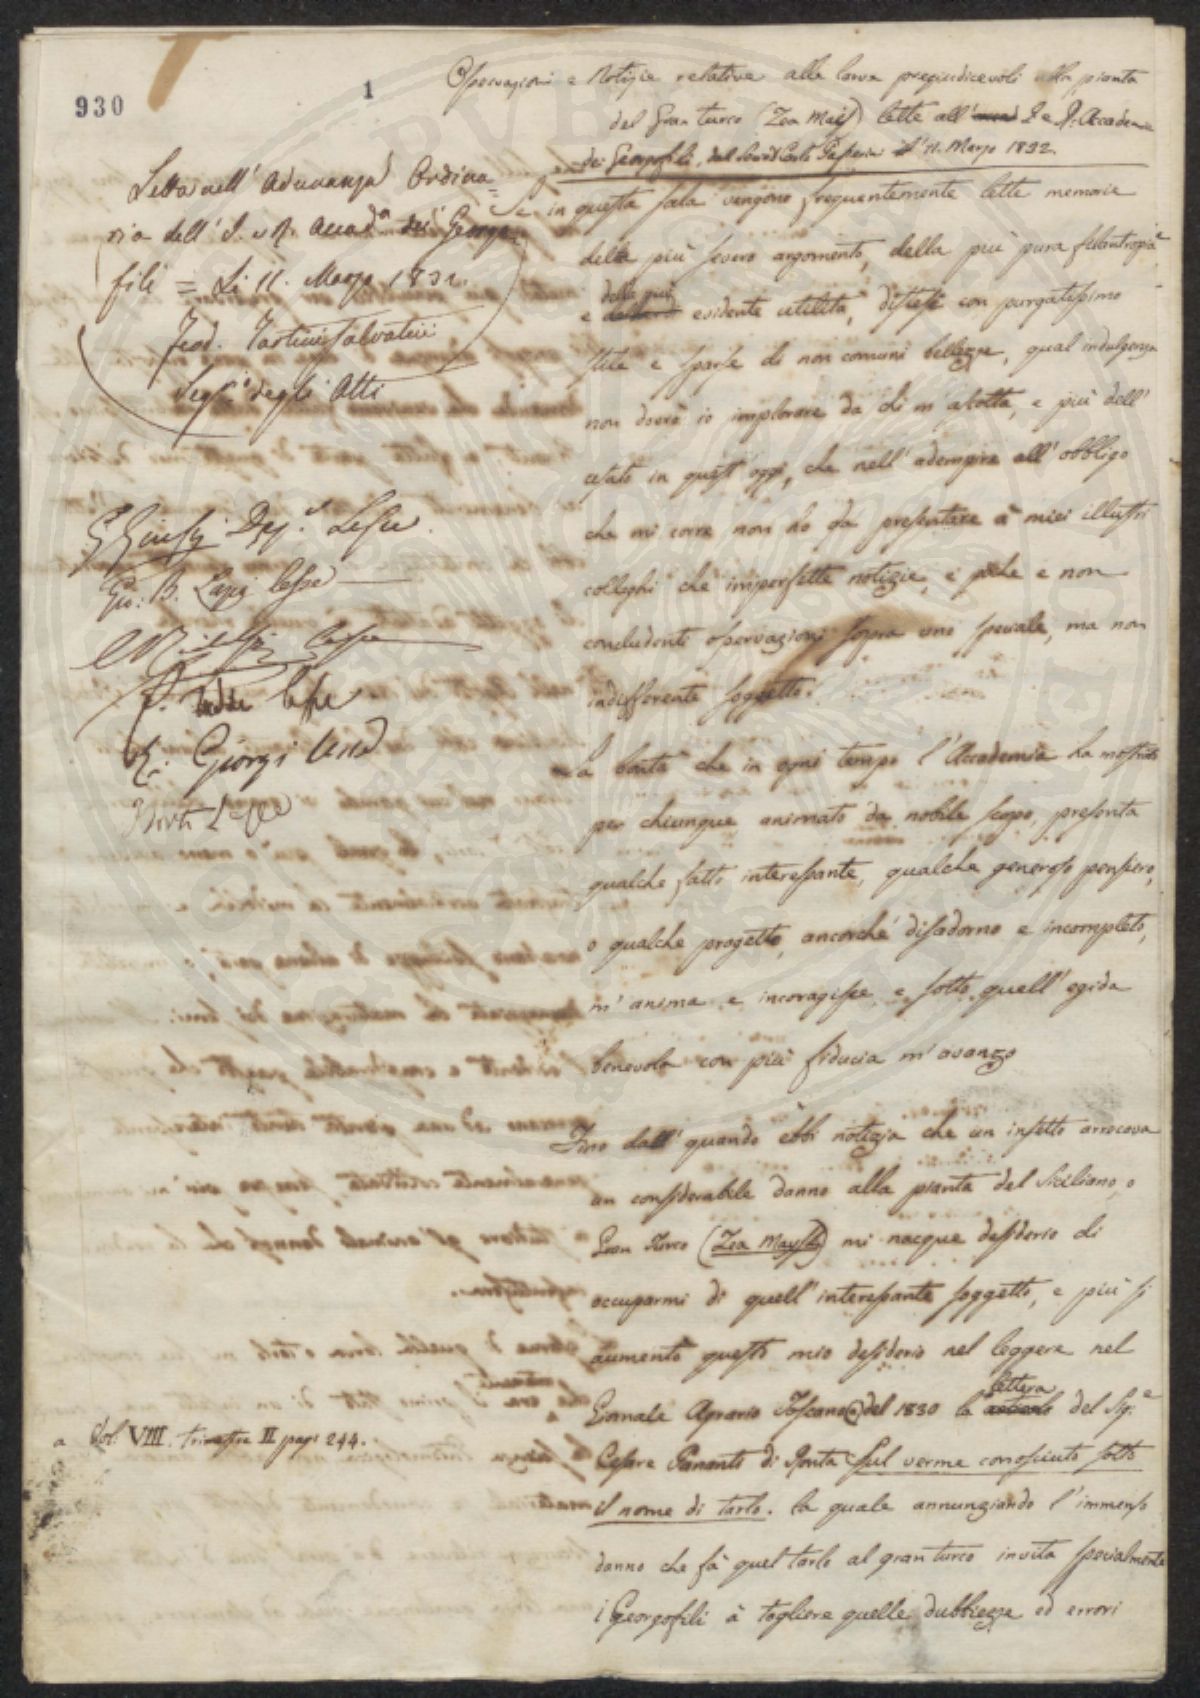 930
1
Osservazioni e Notizie relative alla larva pregiudicevoli alla pianta
del Gran turco (Zea Mais) lette all' I. e R. Accademia
dei Georgofili, dal Carlo Passerini 11. Marzo 1832.
Letta nell' Adunanza Ordina=
ria dell' I. e R. Accad.a dei Georgo=
fili = Li 11. Marzo 1832.
Feod. Tartini Salvatici
Seg.o degli Atti
Lesse
Gio: B. Lapi lesse
lesse
lesse
E. Giorgi
Se in questa sala vengono frequentemente lette memorie
della più severo argomento, della più pura filantropia
della più
e evidente utilità, distese con purgatissimo
stile e sparse di non comuni bellezze, qual indulgenza
non dovrò io implorare da chi m' ascolta, e più dell'
usato in quest' oggi, che nell' adempire all' obbligo
che mi corre non ho da presentare à miei illustri
colleghi che imperfette notizie, e poche e non
concludenti osservazioni sopra uno speciale, ma non
indifferente soggetto.
La bontà che in ogni tempo l' Accademia ha mostrato
per chiunque animato da nobile scopo, presenta
qualche fatto interessante, qualche generoso pensiero,
o qualche progetto, ancorchè disadorno e incompleto,
m' anima e incoragisce, e sotto quell' egida
benevola con più fiducia m' avanzo
Fino dall' quando ebbi notizia che un insetto arrecava
un considerabile danno alla pianta del Siciliano o
Gran Turco (Zea Mays) mi nacque desiderio di
occuparmi di quell' interessante soggetto, e più si
aumentò questo mio desiderio nel leggere nel
lettera
Giornale Agrario Toscano (a) del 1830 la del Sig.e
a Vol. VIII. trimestre II pag. 244.
Cesare di Ronta Sul verme conosciuto sotto
il nome di tarlo. la quale annunziando l' immenso
danno che fà quel tarlo al gran turco invita specialmente
i Georgofili à togliere quelle dubbiezze ed errori